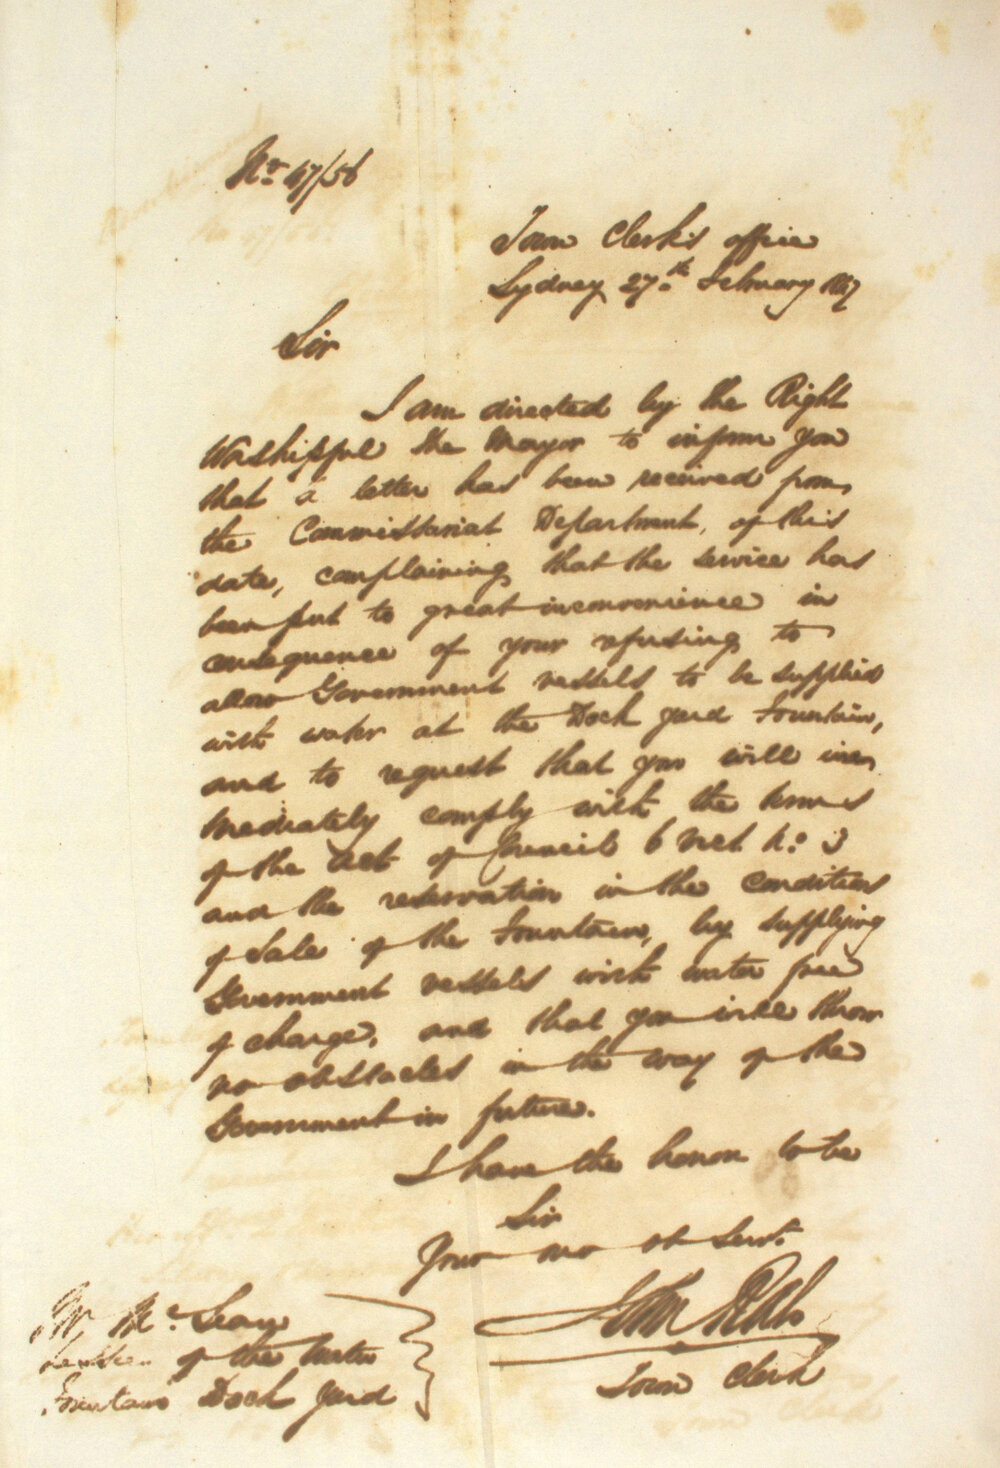 No. 47/56
Town Clerk's office
Sydney 27th February 1847
Sir
I am directed by the Right
Worshipful the Mayor to inform you
that a letter has been received from
the Commissariat Department, of this
date, complaining that the service has
been put to great inconvenience in
consequence of your refusing to
allow Government vessels to be supplied
with water at the Dock yard Fountain,
and to request that you will im
mediately comply with the terms
of the Act of Council 6 Vict. No: 3
and the reservation in the conditions
of Sale of the Fountain, by supplying
Government vessels with water free
of charge, and that you will throw
no obstacles in the way of the
Government in future.
I have the honor to be
Sir
Your mo ob Servt.
John Rae
Town Clerk
Mr McLean
Lessee of the Water
Fountain Dock yard